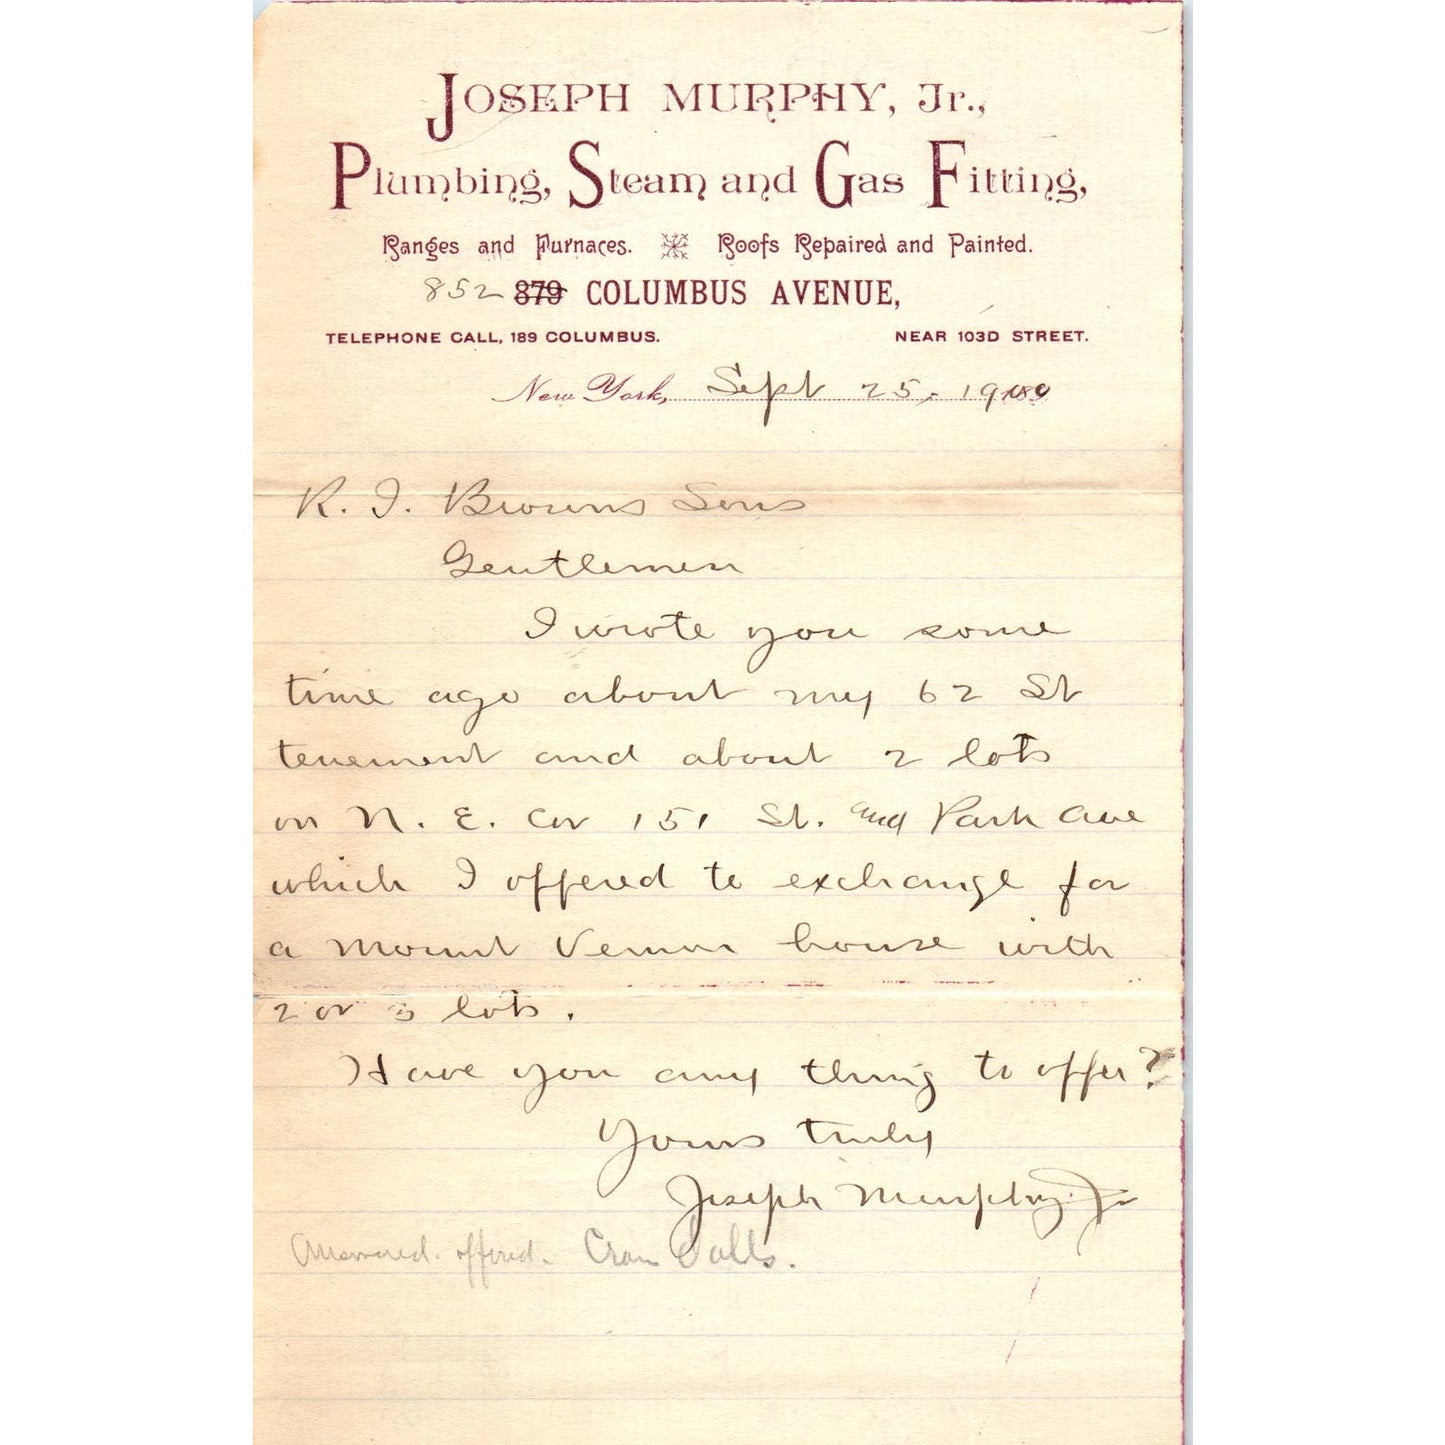 JOSEPH MURPHY, Jr.,
Plumbing, Steam and Gas Fitting,
Ranges and Furnaces. Roofs Repaired and Painted.
852 879 COLUMBUS AVENUE,
TELEPHONE CALL, 189 COLUMBUS. NEAR 103D STREET.
New York, Sept 25, 1900
R. I. Browns Sons
Gentlemen
I wrote you some
time ago about my 62 St
tenement and about 2 lots
on N. E. Cor 151 St. and Park Ave
which I offered to exchange for
a Mount Vernon house with
2 or 3 lots.
Have you any thing to offer?
Yours truly
Joseph Murphy Jr
Answered. offered.